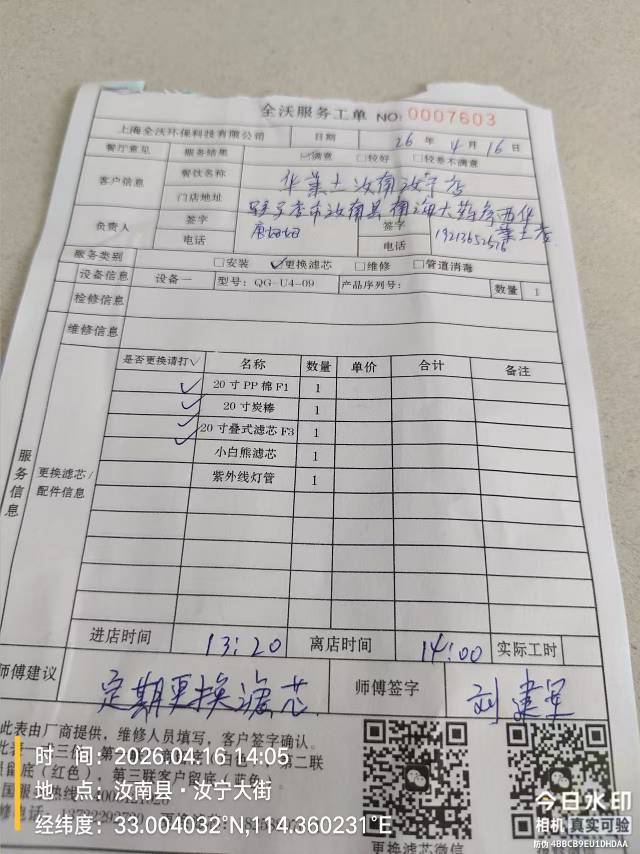 全沃服务工单 NO:0007603
上海全沃环保科技有限公司 日期 26 年 4 月 16 日
餐厅意见 服务结果 ☑满意 □较好 □较差不满意
客户信息 餐饮名称 华莱士汝南汝宁店
门店地址 驻马店市汝南县
负责人 签字 签字
电话 电话 19213652516
服务类别 □安装 ☑更换滤芯 □维修 □管道消毒
设备信息 设备一 型号: QG-U4-09 产品序列号: 数量 1
检修信息
维修信息
服务信息
更换滤芯/配件信息
是否更换请打√ 名称 数量 单价 合计 备注
√ 20寸PP棉F1 1
√ 20寸炭棒 1
√ 20寸叠式滤芯F3 1
小白熊滤芯 1
紫外线灯管 1
进店时间 13:20 离店时间 14:00 实际工时
师傅建议 定期更换滤芯 师傅签字 刘建军
此表由厂商提供，维修人员填写，客户签字确认。
第三联客户留底（蓝色）。
更换滤芯微信
时 间: 2026.04.16 14:05
地 点: 汝南县·汝宁大街
经纬度: 33.004032°N,114.360231°E
今日水印
相机 真实可验
防伪 4BBCB9EU1DHDAA